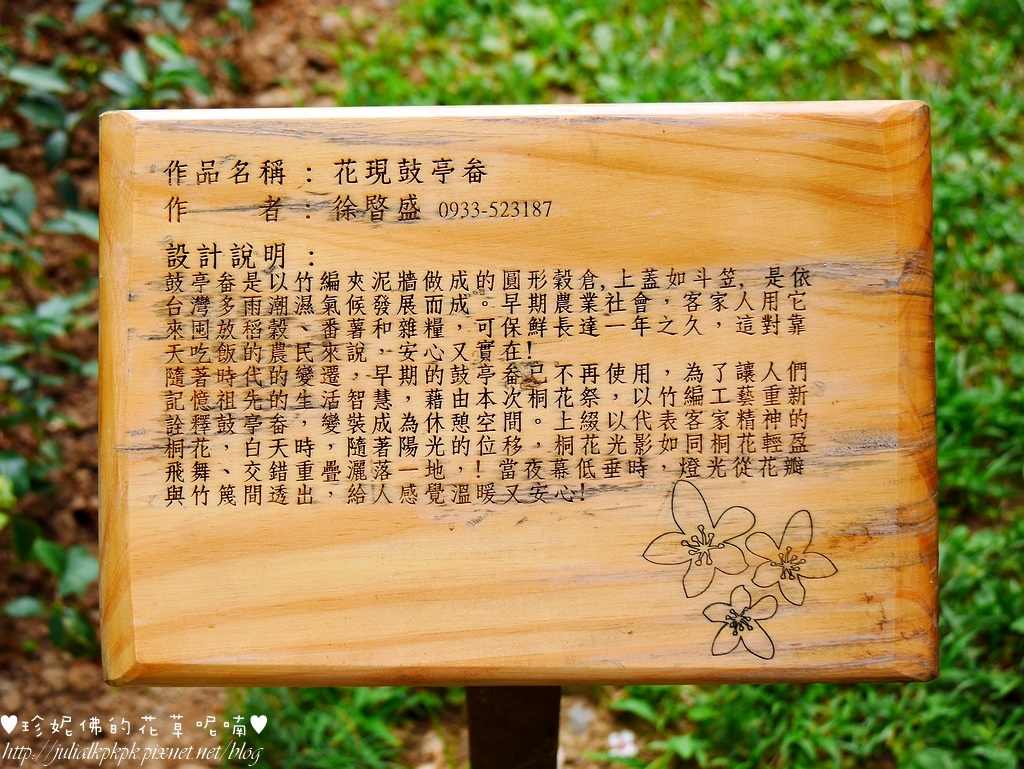 作品名稱：花現鼓亭畚
作　　者：徐暋盛 0933-523187
設計說明：
鼓亭畚是以竹編夾泥牆做成的圓形穀倉,上蓋如斗笠, 是依
台灣多雨潮濕氣候發展而成。早期農業社會，客家人用它
來囤放稻穀、番薯和雜糧，可保鮮長達一年之久，這對靠
天吃飯的農民來說，安心又實在!
隨著時代的變遷，早期的鼓亭畚已不再使用，為了讓人們
記憶祖先的生活智慧，藉由本次桐花祭，以竹編工藝重新
詮釋鼓亭畚，變裝成為休憩空間。上綴以代表客家精神的
桐花，白天時，隨著陽光的位移，桐花光影如同桐花輕盈
飛舞、交錯重疊灑落一地，! 當夜幕低垂時，燈光從花瓣
與竹篾間透出，給人感覺溫暖又安心!
♥珍妮佛的花草呢喃♥
http://julialkpkpk.pixnet.net/blog